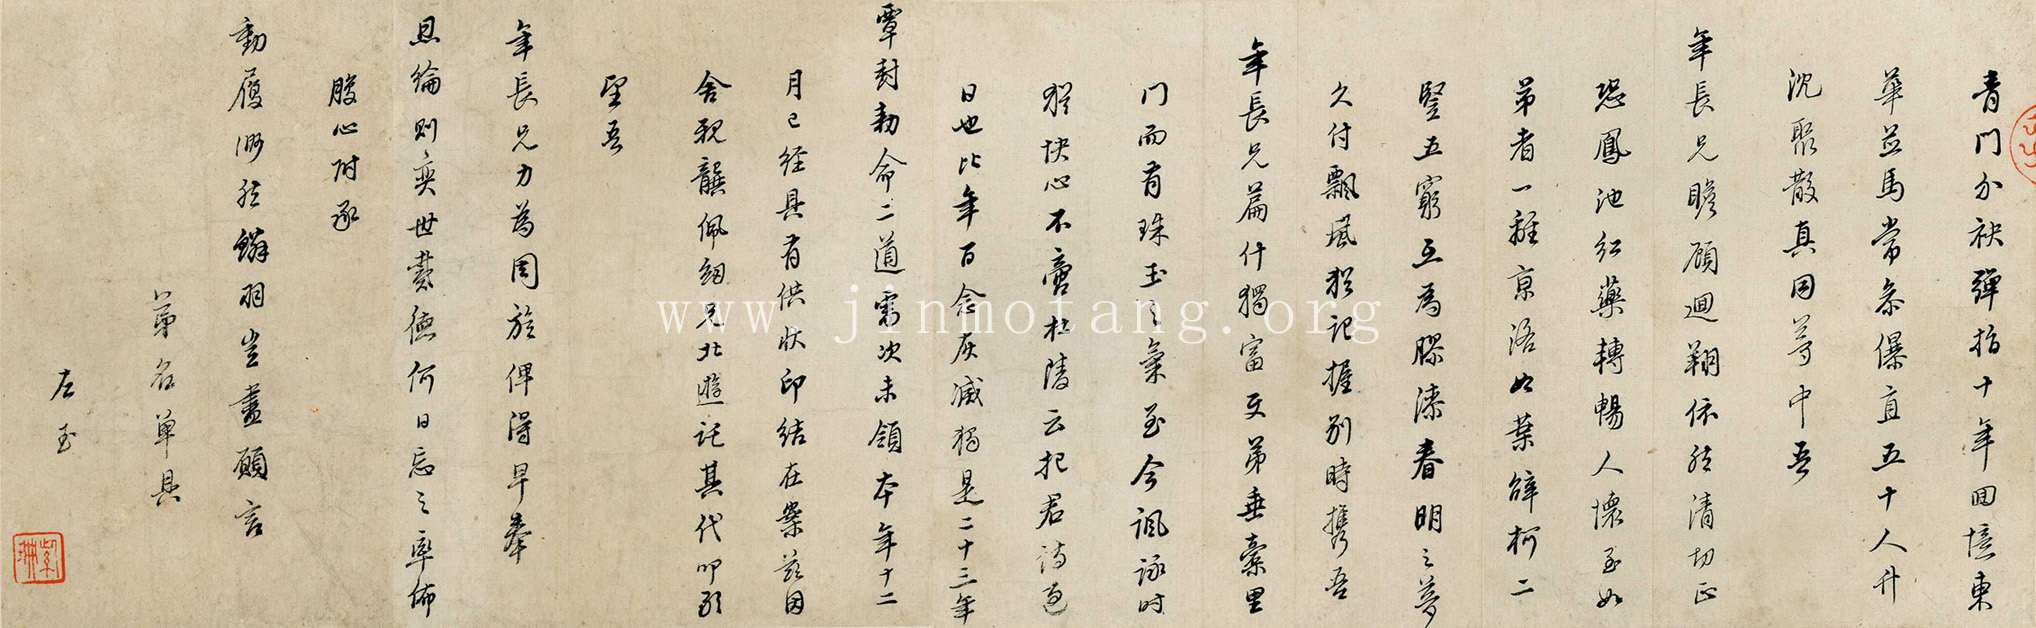 青門分袂彈指十年回憶東
華並馬常參儤直五十人升
沈聚散真同夢中吾
年長兄瞻顧迴翔依然清切正
恐鳳池紅藥轉暢人懷至如
弟者一離京洛如葉辭柯二
豎五窮互為膠漆春明之夢
久付飄風猶記握別時攜吾
年長兄篇什獨富又弟垂橐里
門而有珠玉之氣至今諷詠時
猶快心不啻杜陵云把君詩過
日也比年百念灰滅獨是二十三年
覃封勅命二道需次未領本年十二
月已經具有供狀印結在案茲因
舍親龔佩紉兄北遊託其代叩祈
望吾
年長兄力為周旋俾得早奉
恩綸則奕世戴德何日忘之率佈
腹心附承
動履仰祈鱗羽豈盡願言
弟名單具
左玉
紫琳
www.jinmotang.org